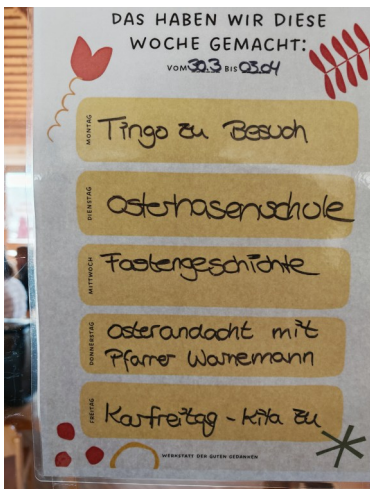 DAS HABEN WIR DIESE
WOCHE GEMACHT:
VOM 30.3 BIS 03.04
MONTAG
Tingo zu Besuch
DIENSTAG
Osterhasenschule
MITTWOCH
Fastengeschichte
DONNERSTAG
Osterandacht mit
Pfarrer Warnemann
FREITAG
Karfreitag - Kita zu
WERKSTATT DER GUTEN GEDANKEN